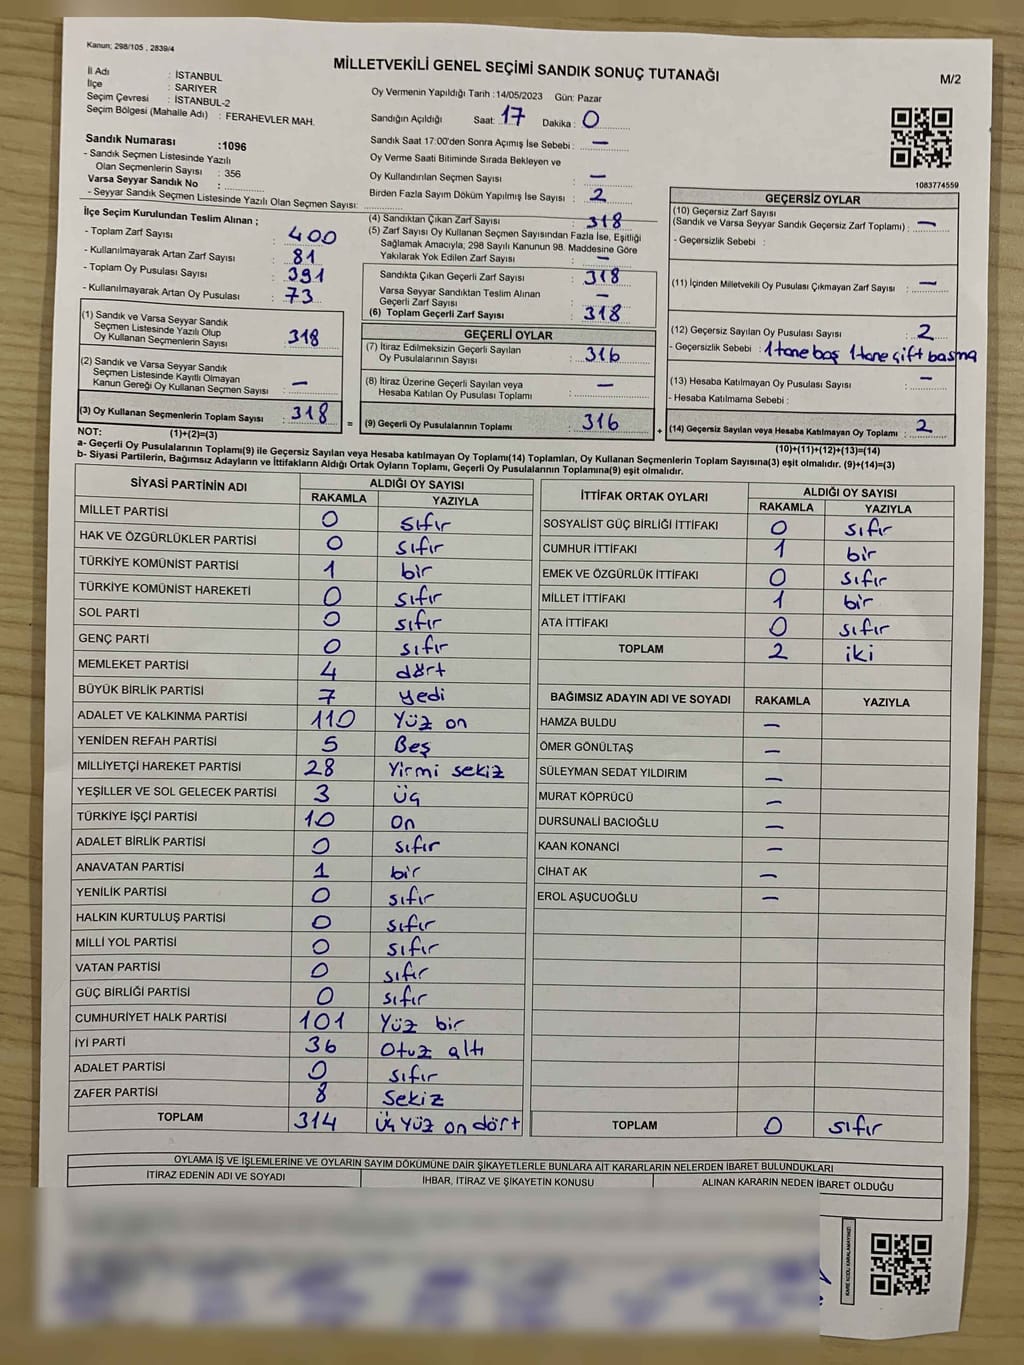 Kanun; 298/105 , 2839/4
MİLLETVEKİLİ GENEL SEÇİMİ SANDIK SONUÇ TUTANAĞI
M/2
İl Adı : İSTANBUL
İlçe : SARIYER
Seçim Çevresi : İSTANBUL-2
Seçim Bölgesi (Mahalle Adı) : FERAHEVLER MAH.
Sandık Numarası :1096
- Sandık Seçmen Listesinde Yazılı
Olan Seçmenlerin Sayısı : 356
Varsa Seyyar Sandık No :
- Seyyar Sandık Seçmen Listesinde Yazılı Olan Seçmen Sayısı:
Oy Vermenin Yapıldığı Tarih :14/05/2023 Gün: Pazar
Sandığın Açıldığı Saat: 17 Dakika : 0
Sandık Saat 17:00'den Sonra Açımış İse Sebebi : —
Oy Verme Saati Bitiminde Sırada Bekleyen ve
Oy Kullandırılan Seçmen Sayısı : —
Birden Fazla Sayım Döküm Yapılmış İse Sayısı : 2
1083774559
İlçe Seçim Kurulundan Teslim Alınan ;
- Toplam Zarf Sayısı : 400
- Kullanılmayarak Artan Zarf Sayısı : 81
- Toplam Oy Pusulası Sayısı : 391
- Kullanılmayarak Artan Oy Pusulası : 73
(1) Sandık ve Varsa Seyyar Sandık
Seçmen Listesinde Yazılı Olup
Oy Kullanan Seçmenlerin Sayısı : 318
(2) Sandık ve Varsa Seyyar Sandık
Seçmen Listesinde Kayıtlı Olmayan
Kanun Gereği Oy Kullanan Seçmen Sayısı : —
(3) Oy Kullanan Seçmenlerin Toplam Sayısı : 318
(4) Sandıktan Çıkan Zarf Sayısı : 318
(5) Zarf Sayısı Oy Kullanan Seçmen Sayısından Fazla İse, Eşitliği
Sağlamak Amacıyla; 298 Sayılı Kanunun 98. Maddesine Göre
Yakılarak Yok Edilen Zarf Sayısı : —
Sandıkta Çıkan Geçerli Zarf Sayısı : 318
Varsa Seyyar Sandıktan Teslim Alınan
Geçerli Zarf Sayısı : —
(6) Toplam Geçerli Zarf Sayısı : 318
GEÇERLİ OYLAR
(7) İtiraz Edilmeksizin Geçerli Sayılan
Oy Pusulalarının Sayısı : 316
(8) İtiraz Üzerine Geçerli Sayılan veya
Hesaba Katılan Oy Pusulası Toplamı : —
= (9) Geçerli Oy Pusulalarının Toplamı : 316
GEÇERSİZ OYLAR
(10) Geçersiz Zarf Sayısı
(Sandık ve Varsa Seyyar Sandık Geçersiz Zarf Toplamı) : —
- Geçersizlik Sebebi :
(11) İçinden Milletvekili Oy Pusulası Çıkmayan Zarf Sayısı : —
(12) Geçersiz Sayılan Oy Pusulası Sayısı : 2
- Geçersizlik Sebebi : 1 tane boş 1 tane çift basma
(13) Hesaba Katılmayan Oy Pusulası Sayısı : —
- Hesaba Katılmama Sebebi :
+ (14) Geçersiz Sayılan veya Hesaba Katılmayan Oy Toplamı : 2
NOT: (1)+(2)=(3)
(10)+(11)+(12)+(13)=(14)
a- Geçerli Oy Pusulalarının Toplamı(9) ile Geçersiz Sayılan veya Hesaba katılmayan Oy Toplamı(14) Toplamları, Oy Kullanan Seçmenlerin Toplam Sayısına(3) eşit olmalıdır. (9)+(14)=(3)
b- Siyasi Partilerin, Bağımsız Adayların ve İttifakların Aldığı Ortak Oyların Toplamı, Geçerli Oy Pusulalarının Toplamına(9) eşit olmalıdır.
SİYASİ PARTİNİN ADI ALDIĞI OY SAYISI
RAKAMLA YAZIYLA
MİLLET PARTİSİ 0 sıfır
HAK VE ÖZGÜRLÜKLER PARTİSİ 0 sıfır
TÜRKİYE KOMÜNİST PARTİSİ 1 bir
TÜRKİYE KOMÜNİST HAREKETİ 0 sıfır
SOL PARTİ 0 sıfır
GENÇ PARTİ 0 sıfır
MEMLEKET PARTİSİ 4 dört
BÜYÜK BİRLİK PARTİSİ 7 yedi
ADALET VE KALKINMA PARTİSİ 110 Yüz on
YENİDEN REFAH PARTİSİ 5 Beş
MİLLİYETÇİ HAREKET PARTİSİ 28 Yirmi sekiz
YEŞİLLER VE SOL GELECEK PARTİSİ 3 üç
TÜRKİYE İŞÇİ PARTİSİ 10 on
ADALET BİRLİK PARTİSİ 0 sıfır
ANAVATAN PARTİSİ 1 bir
YENİLİK PARTİSİ 0 sıfır
HALKIN KURTULUŞ PARTİSİ 0 sıfır
MİLLİ YOL PARTİSİ 0 sıfır
VATAN PARTİSİ 0 sıfır
GÜÇ BİRLİĞİ PARTİSİ 0 sıfır
CUMHURİYET HALK PARTİSİ 101 Yüz bir
İYİ PARTİ 36 Otuz altı
ADALET PARTİSİ 0 sıfır
ZAFER PARTİSİ 8 Sekiz
TOPLAM 314 Üç yüz on dört
İTTİFAK ORTAK OYLARI ALDIĞI OY SAYISI
RAKAMLA YAZIYLA
SOSYALİST GÜÇ BİRLİĞİ İTTİFAKI 0 sıfır
CUMHUR İTTİFAKI 1 bir
EMEK VE ÖZGÜRLÜK İTTİFAKI 0 sıfır
MİLLET İTTİFAKI 1 bir
ATA İTTİFAKI 0 sıfır
TOPLAM 2 iki
BAĞIMSIZ ADAYIN ADI VE SOYADI RAKAMLA YAZIYLA
HAMZA BULDU —
ÖMER GÖNÜLTAŞ —
SÜLEYMAN SEDAT YILDIRIM —
MURAT KÖPRÜCÜ —
DURSUNALİ BACIOĞLU —
KAAN KONANCİ —
CİHAT AK —
EROL AŞUCUOĞLU —
TOPLAM 0 sıfır
OYLAMA İŞ VE İŞLEMLERİNE VE OYLARIN SAYIM DÖKÜMÜNE DAİR ŞİKAYETLERLE BUNLARA AİT KARARLARIN NELERDEN İBARET BULUNDUKLARI
İTİRAZ EDENİN ADI VE SOYADI İHBAR, İTİRAZ VE ŞİKAYETİN KONUSU ALINAN KARARIN NEDEN İBARET OLDUĞU
KARE KODU KARALAMAYINIZ!